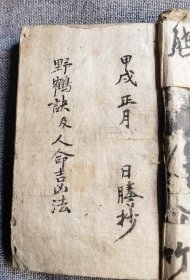 甲戌正月 日謄抄
野鶴訣及人命吉凶法